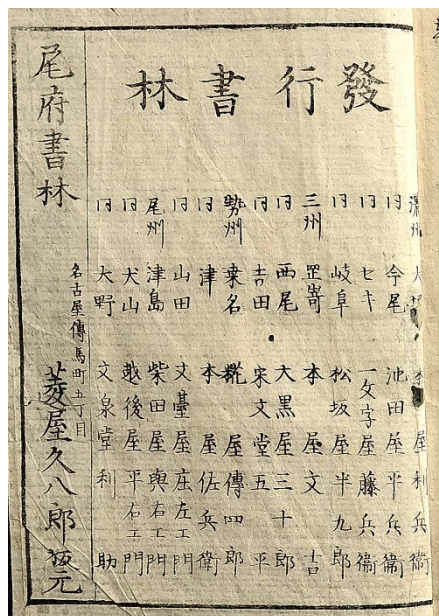 發行書林
濃州 大垣 本屋利兵衛
同 今尾 池田屋平兵衞
同 セキ 一文字屋藤兵衞
同 岐阜 松坂屋半九郎
三州 罡嵜 本屋文吉
同 西尾 大黒屋三十郎
同 吉田 宋文堂五平
勢州 桒名 糀屋傳四郎
同 津 本屋佐兵衛
同 山田 文臺屋庄左エ門
尾州 津島 柴田屋與右エ門
同 犬山 越後屋平右エ門
同 大野 文泉堂利助
尾府書林 名古屋傳馬町五丁目 菱屋久八郎板元